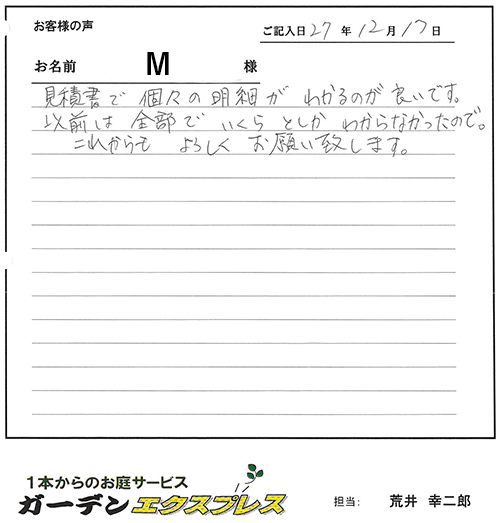 お客様の声
ご記入日 27 年 12 月 17 日
お名前 M 様
見積書で 個々の 明細が わかるのが 良いです。
以前は 全部で いくら としか わからなかったので。
これからも よろしく お願い致します。
1本からのお庭サービス
ガーデン エクスプレス
担当: 荒井 幸二郎